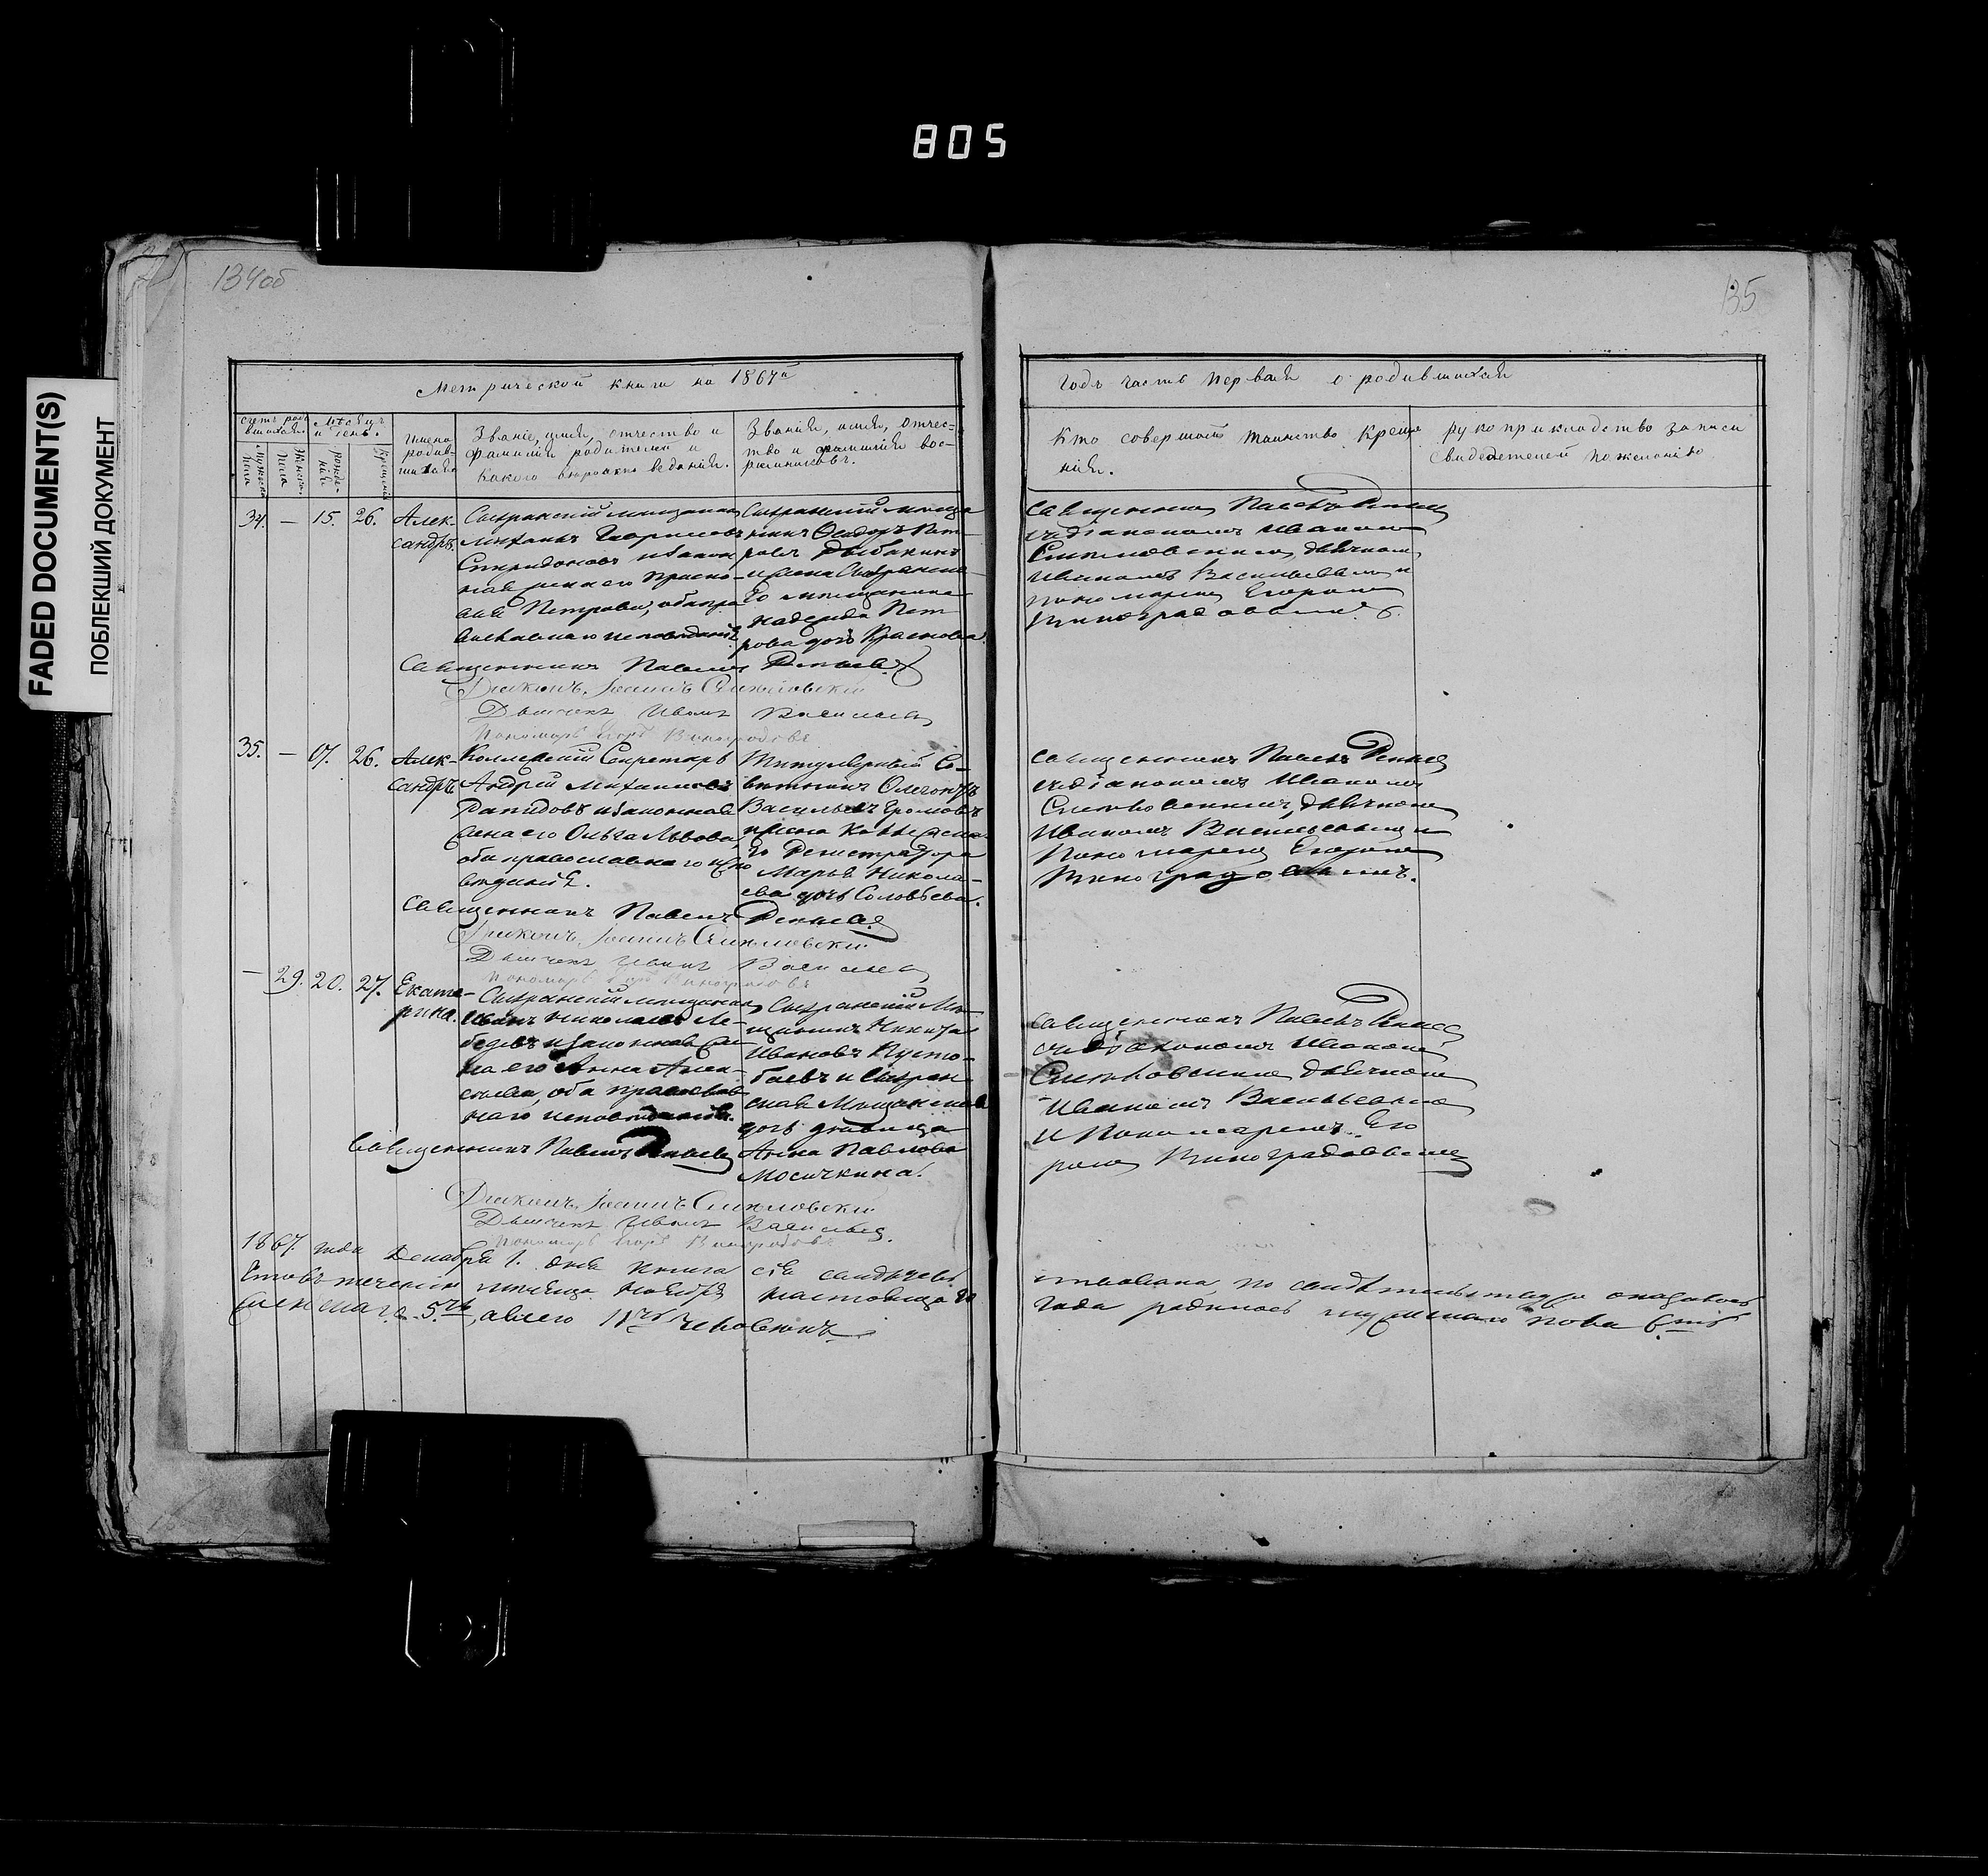 805
FADED DOCUMENT(S)
ПОБЛЕКШИЙ ДОКУМЕНТ
134об
135
Метрической книги на 1867й
годъ часть первая о родившихся
Счетъ роди
вшихся.
Мѣсяцъ
и день.
Мужеска
пола
Женска
пола
рожде-
нія
крещенія
Имена
родив-
шихся
Званіе, имя, отчество и
фамилія родителей и
какого вѣроисповѣданія.
Званія, имя, отчес-
тво и фамилія вос-
приемниковъ.
Кто совершалъ таинство креще
нія.
рукоприкладство записи
свидѣтелей по желанію
34. — 15. 26.
Алек-
сандръ.
Сызранскій мѣщанинъ
Михаилъ Гавриловъ
Спиридоновъ и закон
ная жена его Праско-
вья Петрова, оба пра
вославнаго исповѣданія
Сызранскій мѣща
нинъ Феодоръ Пет-
ровъ Рыбакинъ
и жена Сызранска-
го мѣщанина
Надежда Пет
рова дочь Краснова.
Священникъ Павелъ
съ діакономъ Иваномъ
дьячкомъ
Иваномъ Васильевымъ и
пономаремъ Егоромъ
Виноградовымъ.
Священникъ Павелъ
Діаконъ Іоаннъ
Дьячекъ Иванъ Васильевъ
Пономарь Егоръ Виноградовъ
35. — 17. 26.
Алек-
сандръ
Коллежскій Секретарь
Андрей Михаиловъ
Рапидовъ и законная
жена его Ольга Львова,
оба православнаго испо
вѣданія.
Титулярный Со-
вѣтникъ
Васильевъ Громовъ
и жена Коллежска
го Регистратора
Марья Никола-
ева дочь Соловьева.
Священникъ Павелъ
съ діакономъ Иваномъ
дьячкомъ
Иваномъ Васильевымъ и
Пономаремъ Егоромъ
Виноградовымъ.
Священникъ Павелъ
Діаконъ Іоаннъ
Дьячекъ Иванъ Васильевъ
Пономарь Егоръ Виноградовъ
— 29. 20. 27.
Екате-
рина.
Сызранскій мѣщанинъ
Иванъ Николаевъ Ле-
бедевъ и законная же
на его Анна Алек-
сѣева, оба православ
наго исповѣданія.
Сызранскій Мѣ-
щанинъ Никита
Ивановъ Пусто-
баевъ и Сызран
ская Мѣщанская
дочь дѣвица
Анна Павлова
Мосичкина.
Священникъ Павелъ
съ діакономъ Иваномъ
дьячкомъ
Иваномъ Васильевымъ
и Пономаремъ Его
ромъ Виноградовымъ
Священникъ Павелъ
Діаконъ Іоаннъ
Дьячекъ Иванъ Васильевъ.
Пономарь Егоръ Виноградовъ
1867. года Декабря 1. дня книга сія свидѣтель
ствована, по свидѣтельству оказалось
что въ теченіи мѣсяца Ноября настоящаго
года родилось мужескаго пола 6ть
женскаго 5ть, а всего 11ть человѣкъ